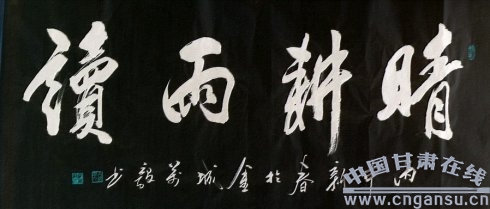 晴耕雨讀
丙 新春於金城 毅书
中国甘肃在线
www.cngansu.cn